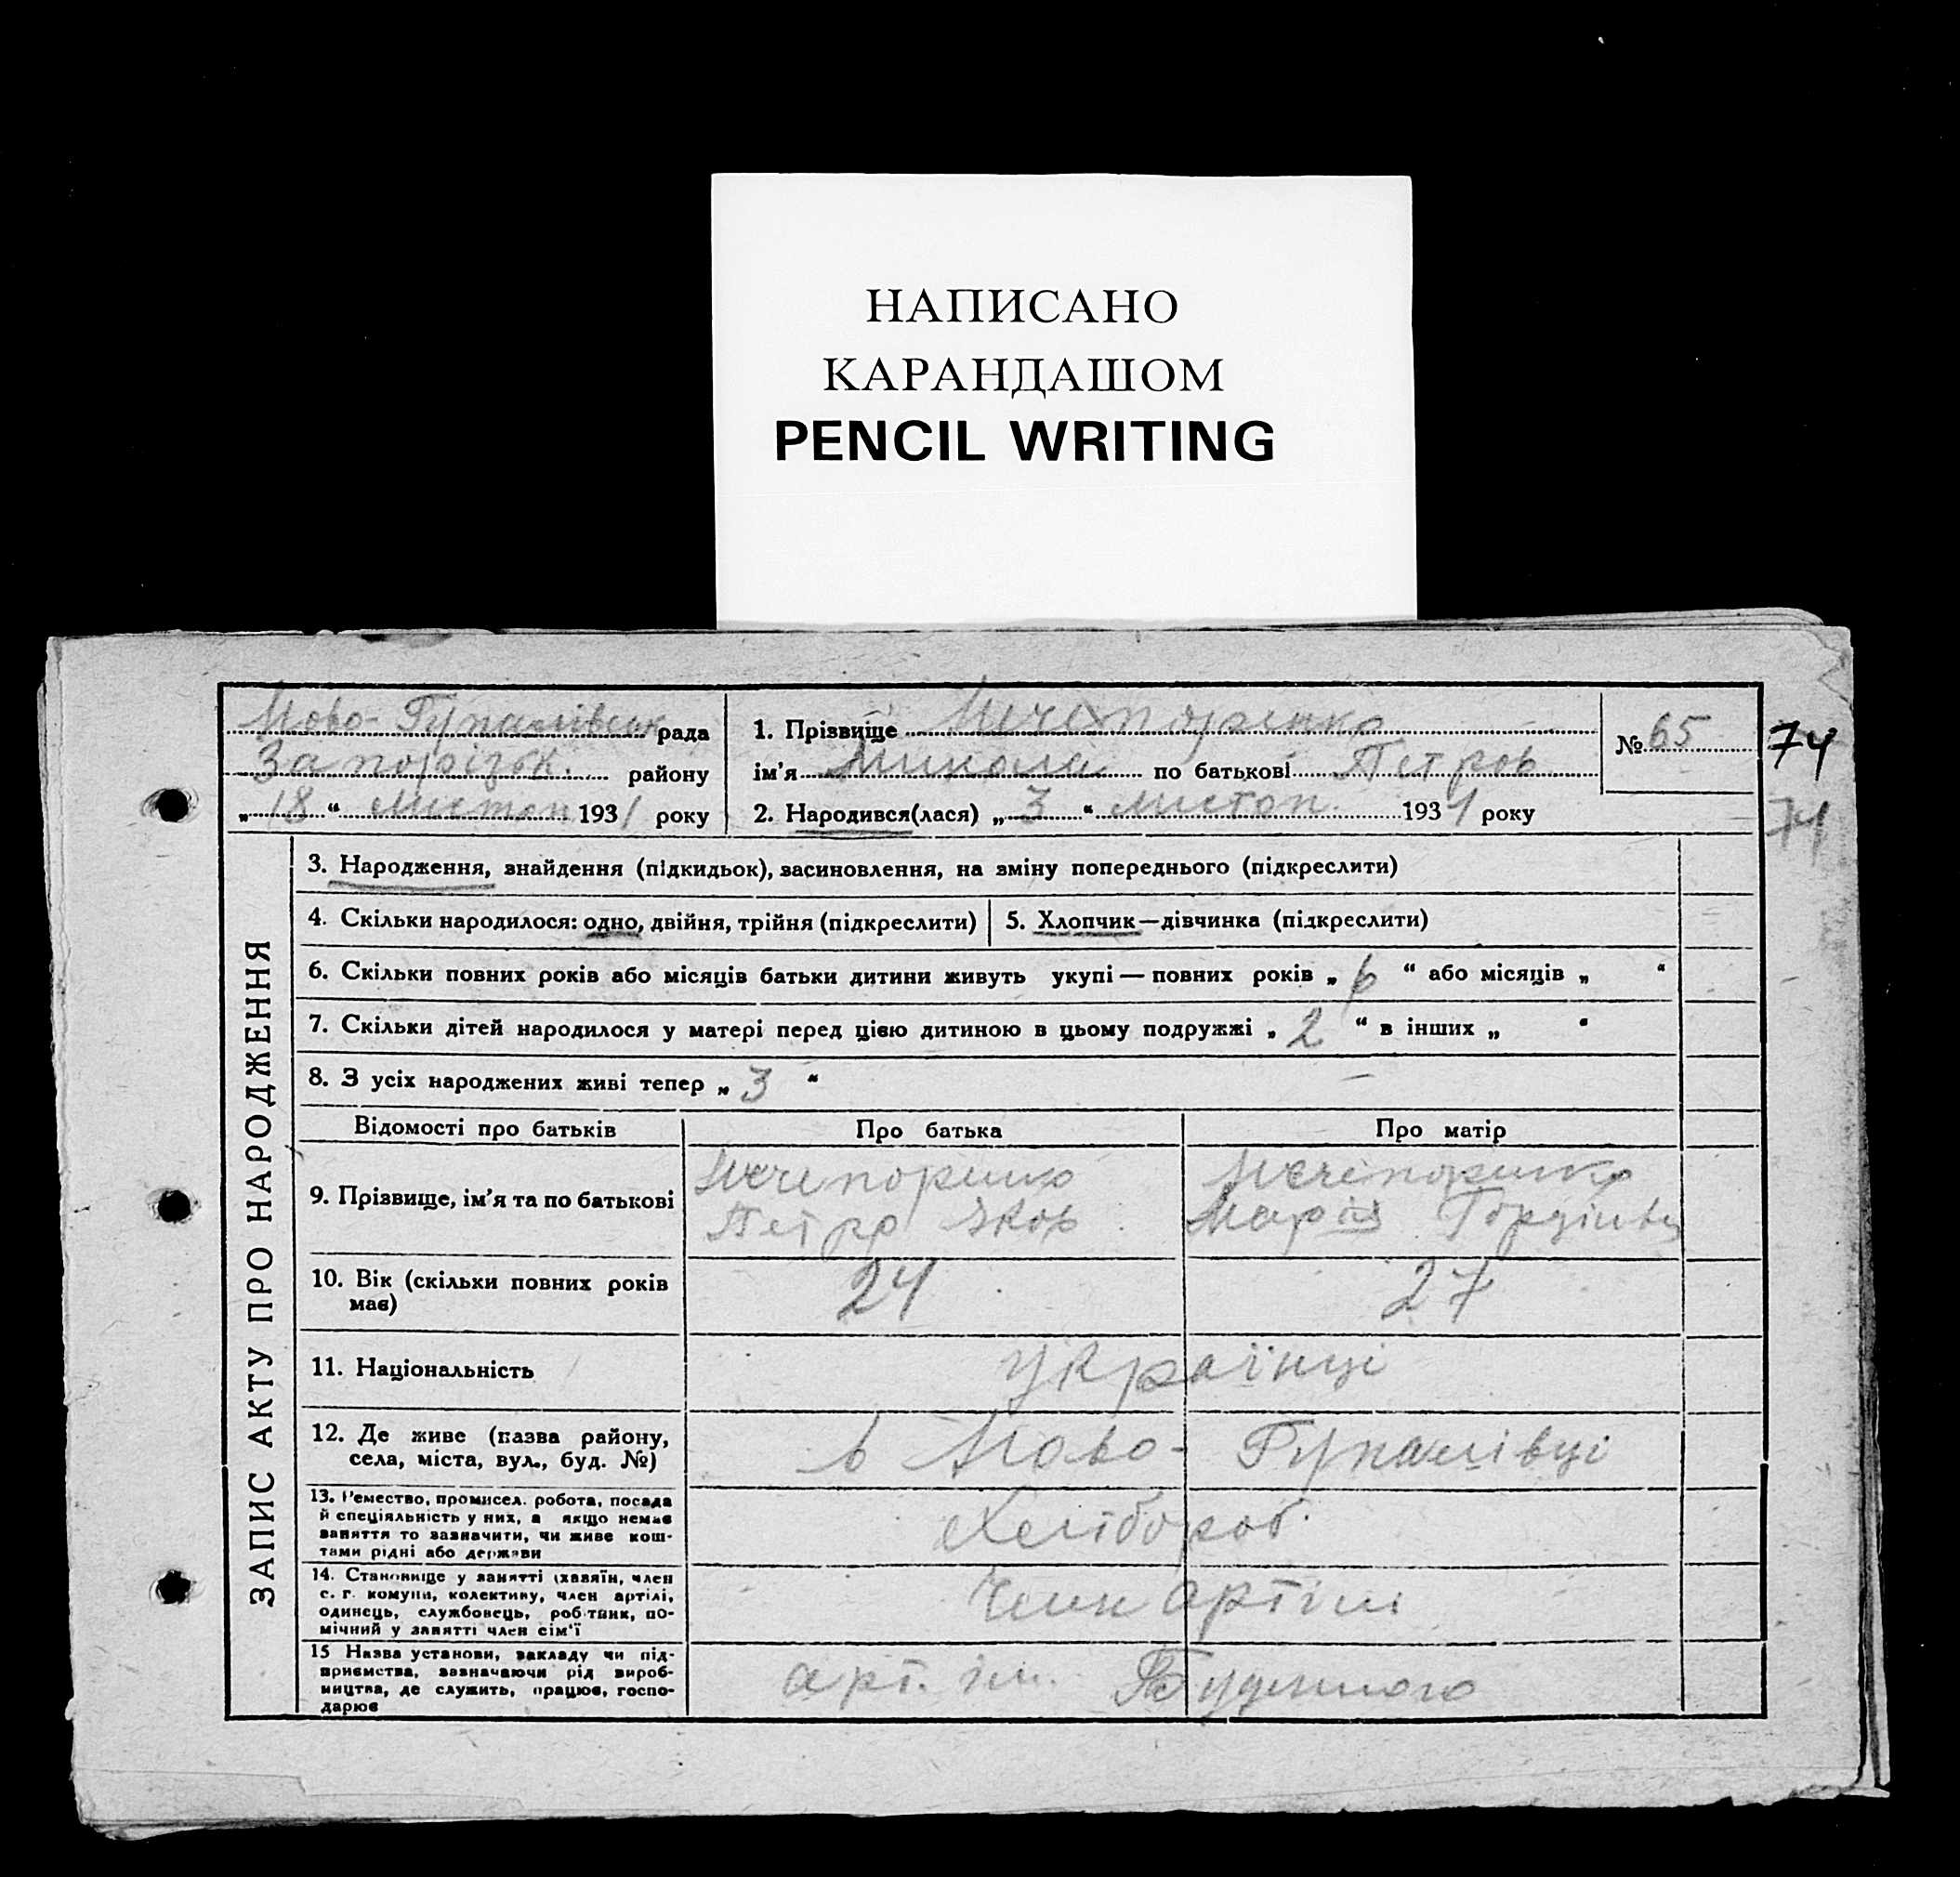 НАПИСАНО
КАРАНДАШОМ
PENCIL WRITING
Ново-Гупалівськ рада
Запорізьк. району
„18“ листоп 1931 року
1. Прізвище Нечепоренко
ім'я Микола по батькові Петров
2. Народився(лася) „3“ листоп. 1931 року
№ 65
74
74
ЗАПИС АКТУ ПРО НАРОДЖЕННЯ
3. Народження, знайдення (підкидьок), засиновлення, на зміну попереднього (підкреслити)
4. Скільки народилося: одно, двійня, трійня (підкреслити) 5. Хлопчик—дівчинка (підкреслити)
6. Скільки повних років або місяців батьки дитини живуть укупі — повних років „6“ або місяців „ “
7. Скільки дітей народилося у матері перед цією дитиною в цьому подружжі „2“ в інших „ “
8. З усіх народжених живі тепер „3“ —
Відомості про батьків Про батька Про матір
9. Прізвище, ім'я та по батькові
Нечепоренко
Петро Яков
Нечепоренко
Марія Гордіївн
10. Вік (скільки повних років
має)
24 27
11. Національність українці
12. Де живе (назва району,
села, міста, вул., буд. №)
в Ново-Гупалівці
13. Ремество, промисел. робота, посада
й спеціяльність у них, а якщо немає
заняття то зазначити, чи живе кош-
тами рідні або держави
Хлібороб.
14. Становище у занятті (хазяїн, член
с. г. комуни, колективу, член артілі,
одинець, службовець, робітник, по-
мічний у занятті член сім'ї
Член артілі
15 Назва установи, закладу чи під-
приємства, зазначаючи рід вироб-
ництва, де служить, працює, госпо-
дарює
арт. ім. Буденного